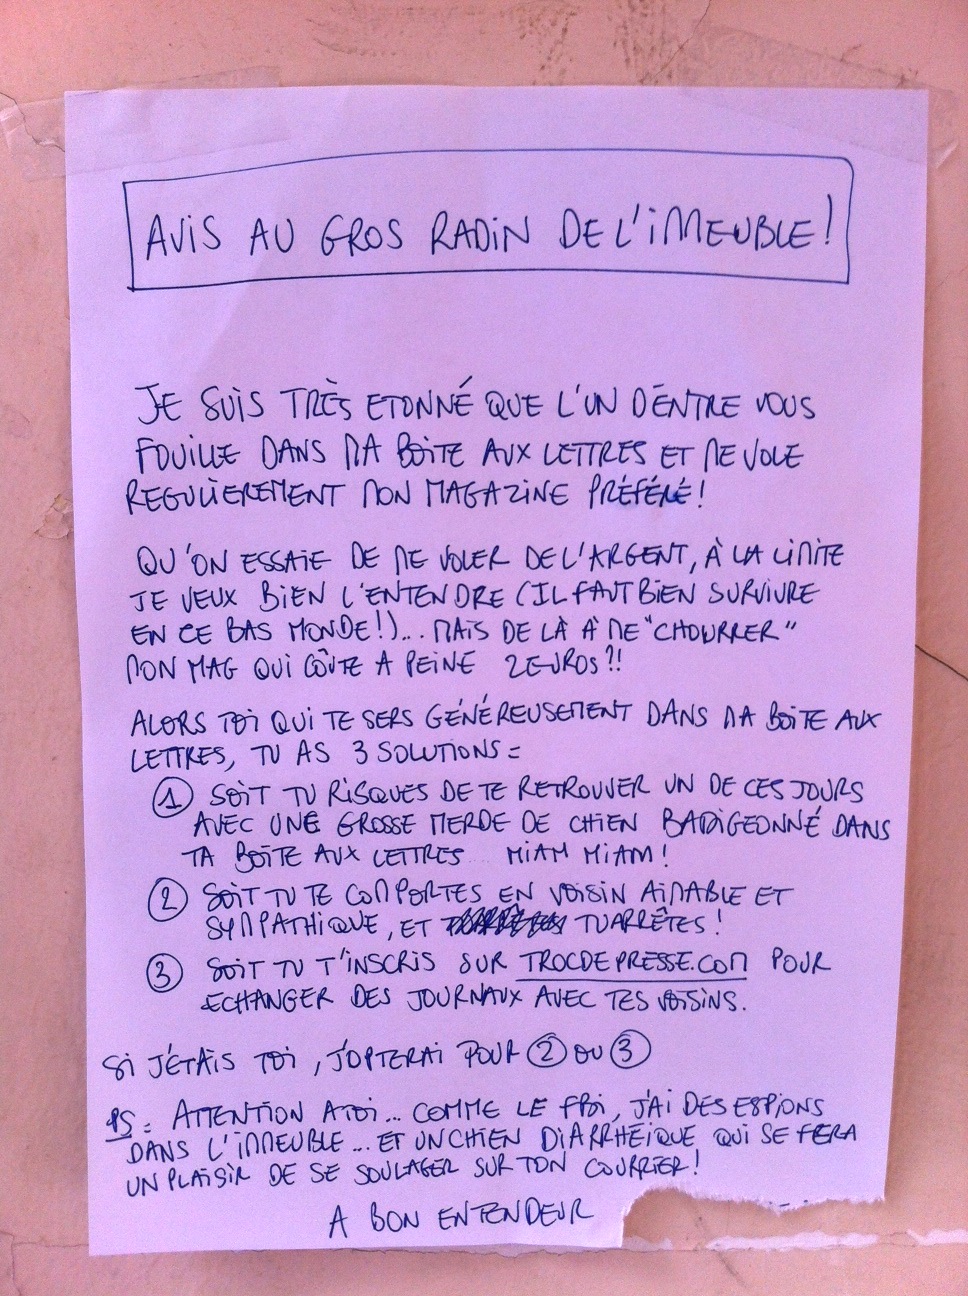 AVIS AU GROS RADIN DE L'IMMEUBLE !
JE SUIS TRÈS ETONNÉ QUE L'UN D'ENTRE VOUS
FOUILLE DANS MA BOITE AUX LETTRES ET ME VOLE
REGULIEREMENT MON MAGAZINE PRÉFÉRÉ !
QU'ON ESSAIE DE ME VOLER DE L'ARGENT, À LA LIMITE
JE VEUX BIEN L'ENTENDRE (IL FAUT BIEN SURVIVRE
EN CE BAS MONDE !)... MAIS DE LÀ À ME "CHOURRER"
MON MAG QUI COÛTE A PEINE 2 EUROS ?!
ALORS TOI QUI TE SERS GÉNÉREUSEMENT DANS MA BOITE AUX
LETTRES, TU AS 3 SOLUTIONS =
① SOIT TU RISQUES DE TE RETROUVER UN DE CES JOURS
AVEC UNE GROSSE MERDE DE CHIEN BADIGEONNÉ DANS
TA BOÎTE AUX LETTRES MIAM MIAM !
② SOIT TU TE COMPORTES EN VOISIN AIMABLE ET
SYMPATHIQUE, ET TU ARRÊTES !
③ SOIT TU T'INSCRIS SUR TROCDEPRESSE.COM POUR
ECHANGER DES JOURNAUX AVEC TES VOISINS.
SI J'ÉTAIS TOI, J'OPTERAI POUR ② OU ③
PS : ATTENTION A TOI... COMME LE FBI, J'AI DES ESPIONS
DANS L'IMMEUBLE... ET UN CHIEN DIARRHEIQUE QUI SE FERA
UN PLAISIR DE SE SOULAGER SUR TON COURRIER !
A BON ENTENDEUR